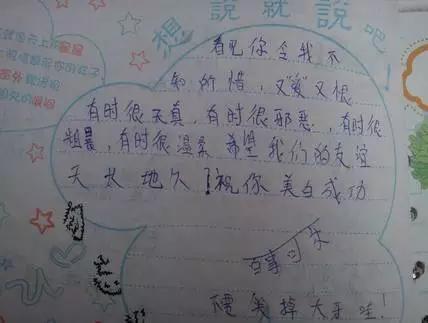 想說就說吧!
看见你令我不
知所惜，又"爱"又恨
有时很天真，有时很邪恶，有时很
粗暴，有时很温柔 希望我们的友谊
天太地久!祝你 美白成功
百事可乐
不要笑掉大牙哇!